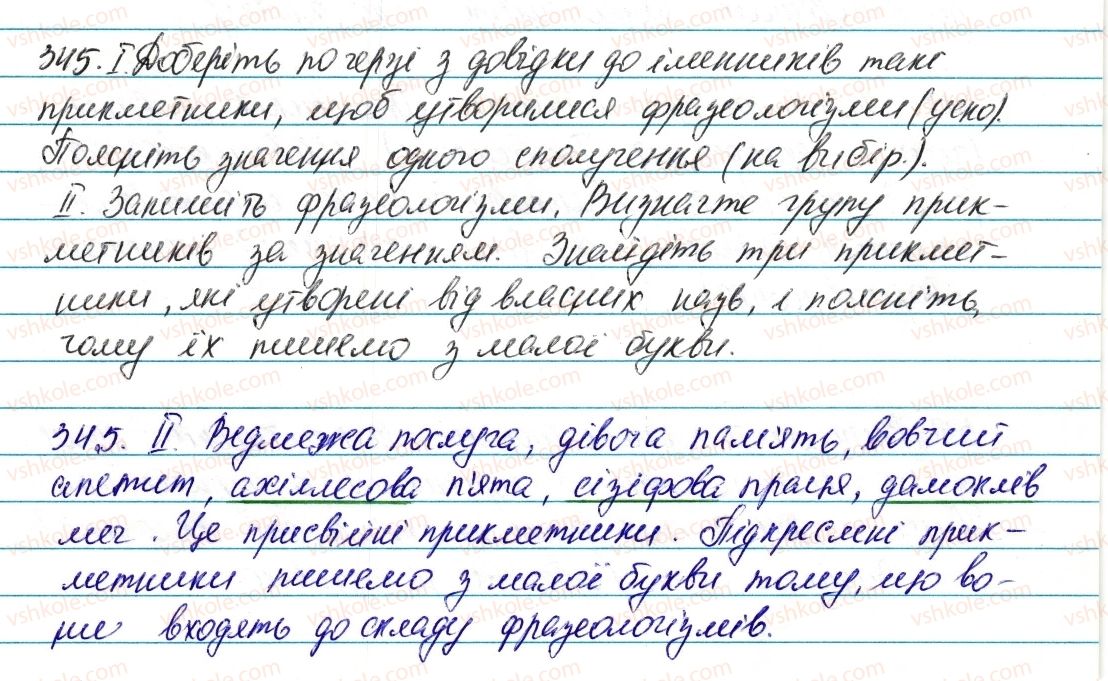 345. I. Доберіть по черзі з довідки до іменників такі
прикметники, щоб утворилися фразеологізми (усно).
Поясніть значення одного сполучення (на вибір.).
II. Запишіть фразеологізми. Визначте групу прик-
метників за значенням. Знайдіть три прикмет-
ники, які утворені від власних назв, і поясніть,
чому їх пишемо з малої букви.
345. II. Ведмежа послуга, дівоча пам'ять, вовчий
апетит, ахіллесова п'ята, сізіфова праця, дамоклів
меч. Це присвійні прикметники. Підкреслені прик-
метники пишемо з малої букви тому, що во-
ни входять до складу фразеологізмів.